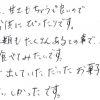 、甘さもちょうど良くて
供にぴったりです。
類もたくさんあるとの事で、
食べてみたいです。
出していただいたお菓子
しかったです。